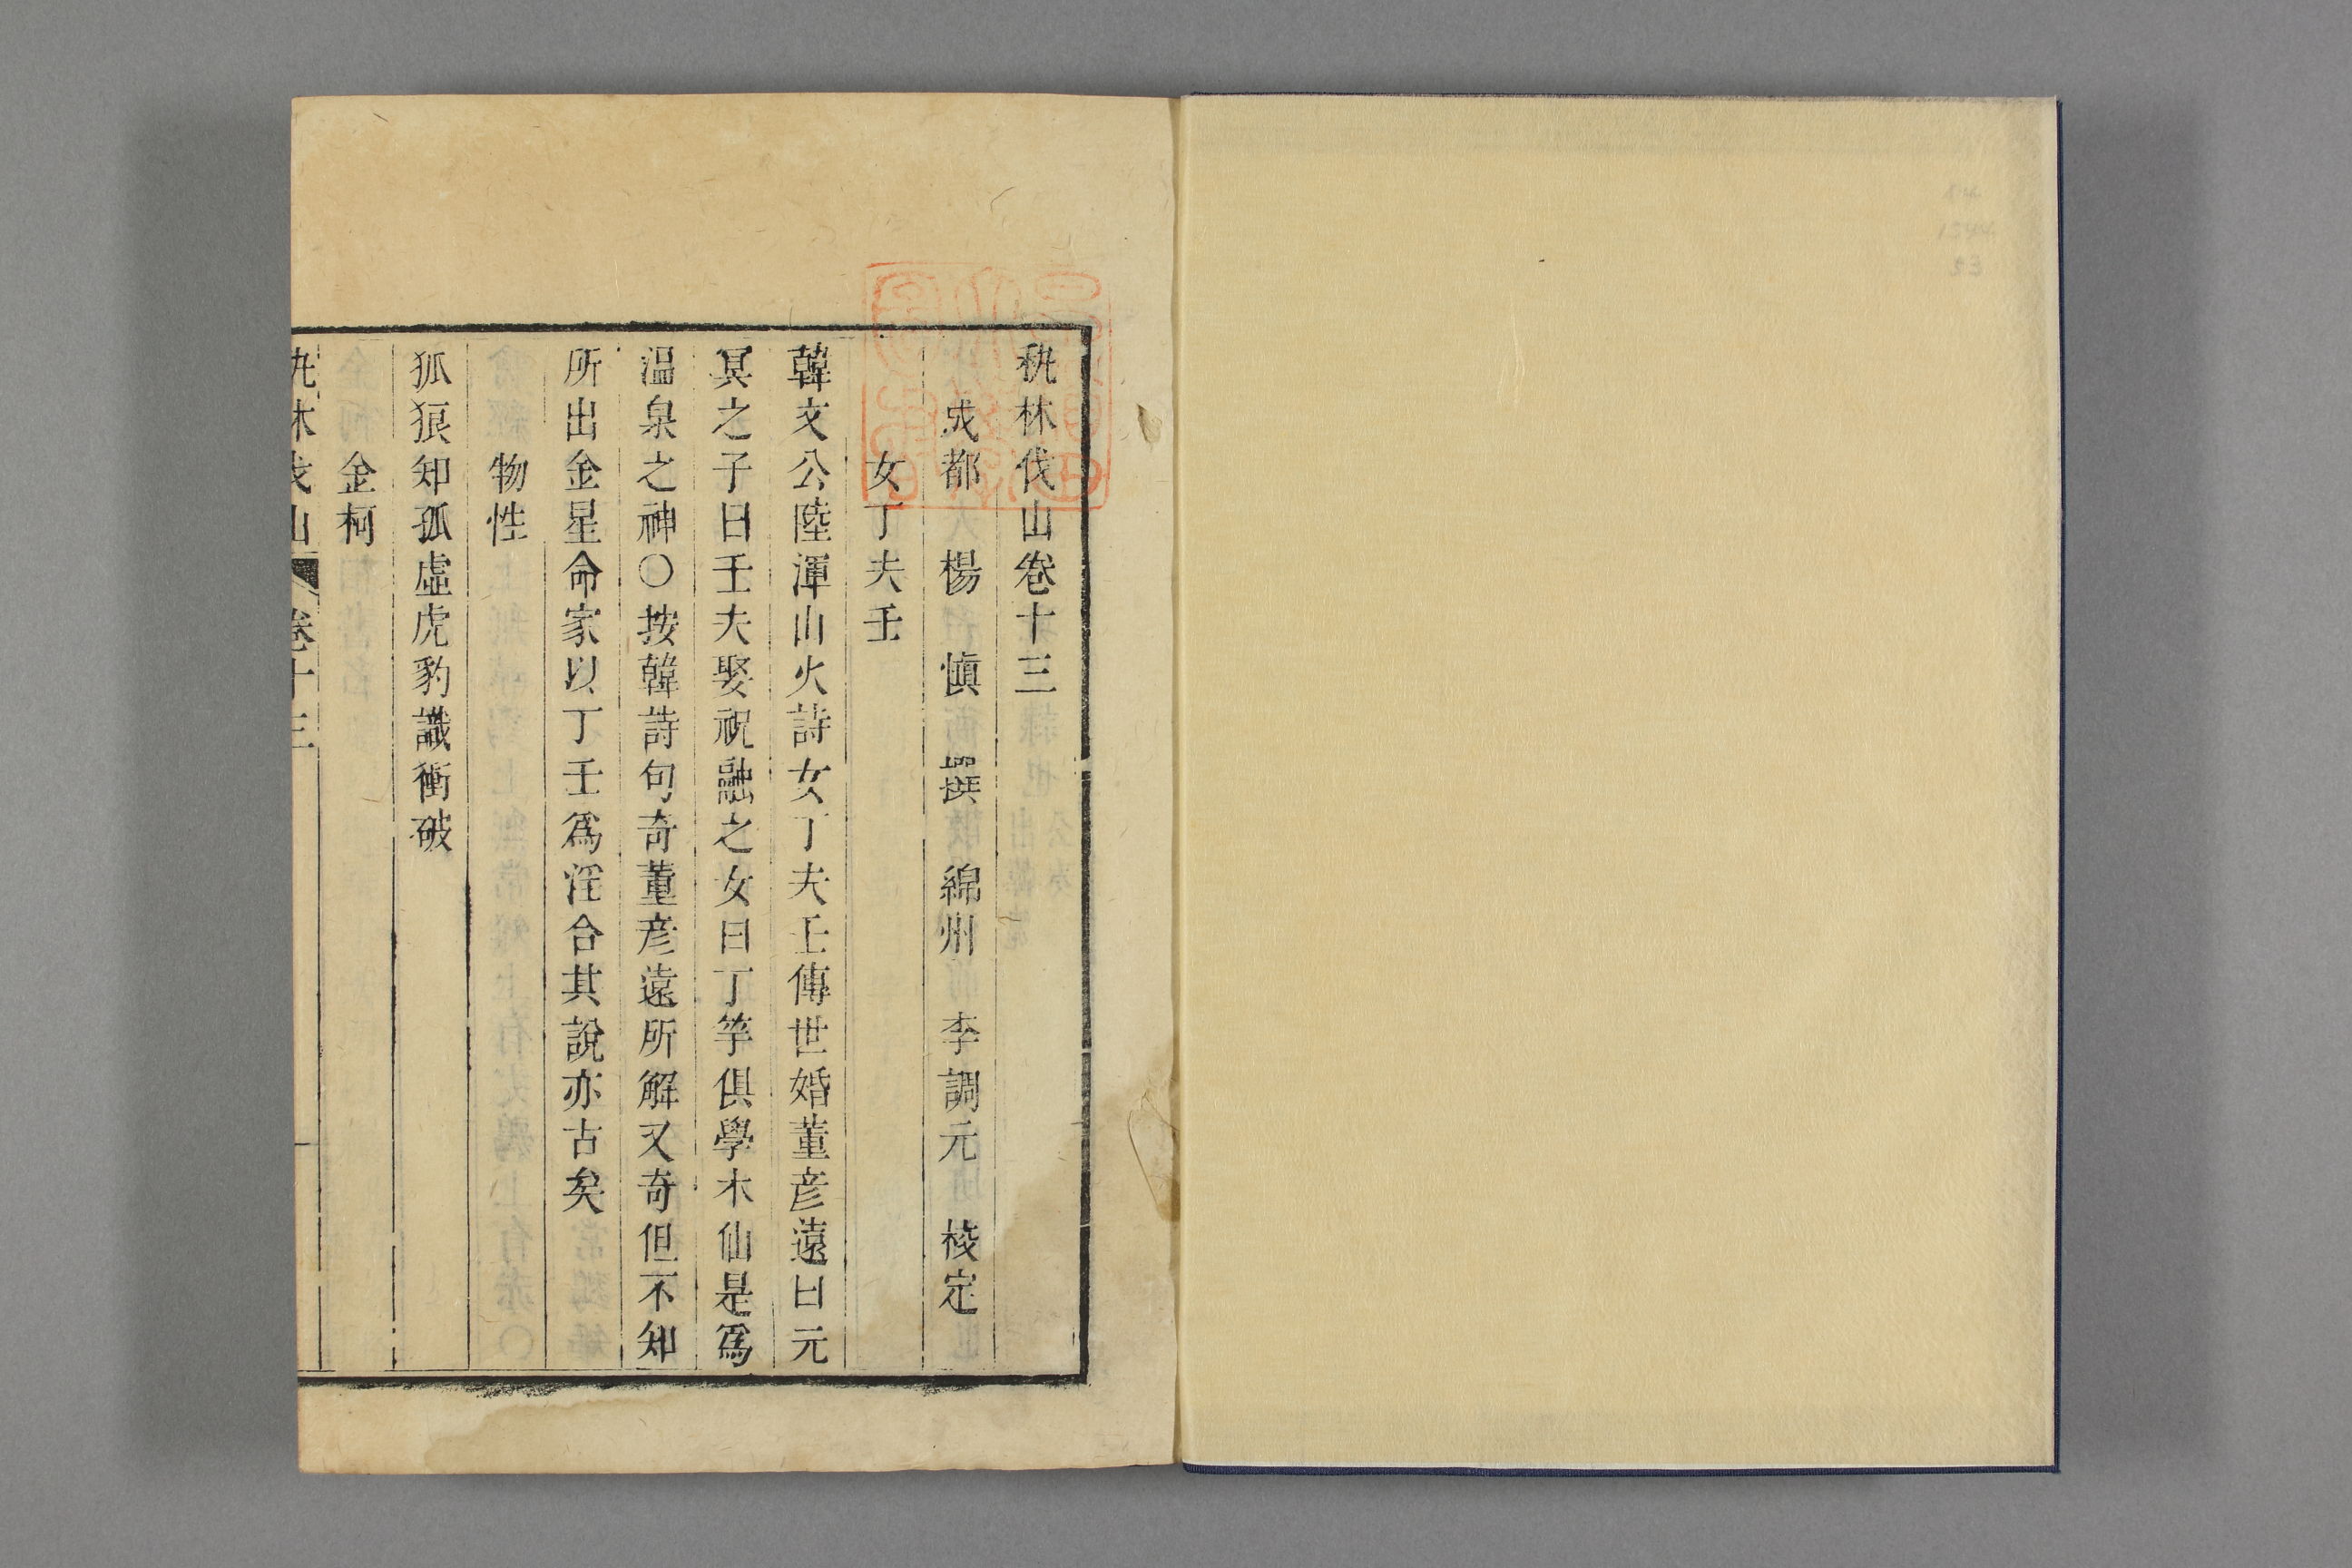 秇林伐山卷十三
成都 楊 愼 撰 綿州 李調元 校定
女丁夫壬
韓文公陸渾山火詩女丁夫壬傳世婚董彦遠曰元
冥之子曰壬夫娶祝融之女曰丁芉俱學木仙是爲
温泉之神〇按韓詩句奇董彦遠所解又奇但不知
所出金星命家以丁壬爲淫合其說亦古矣
物性
狐狼知孤虛虎豹識衝破
金柯
秇林伐山 卷十三